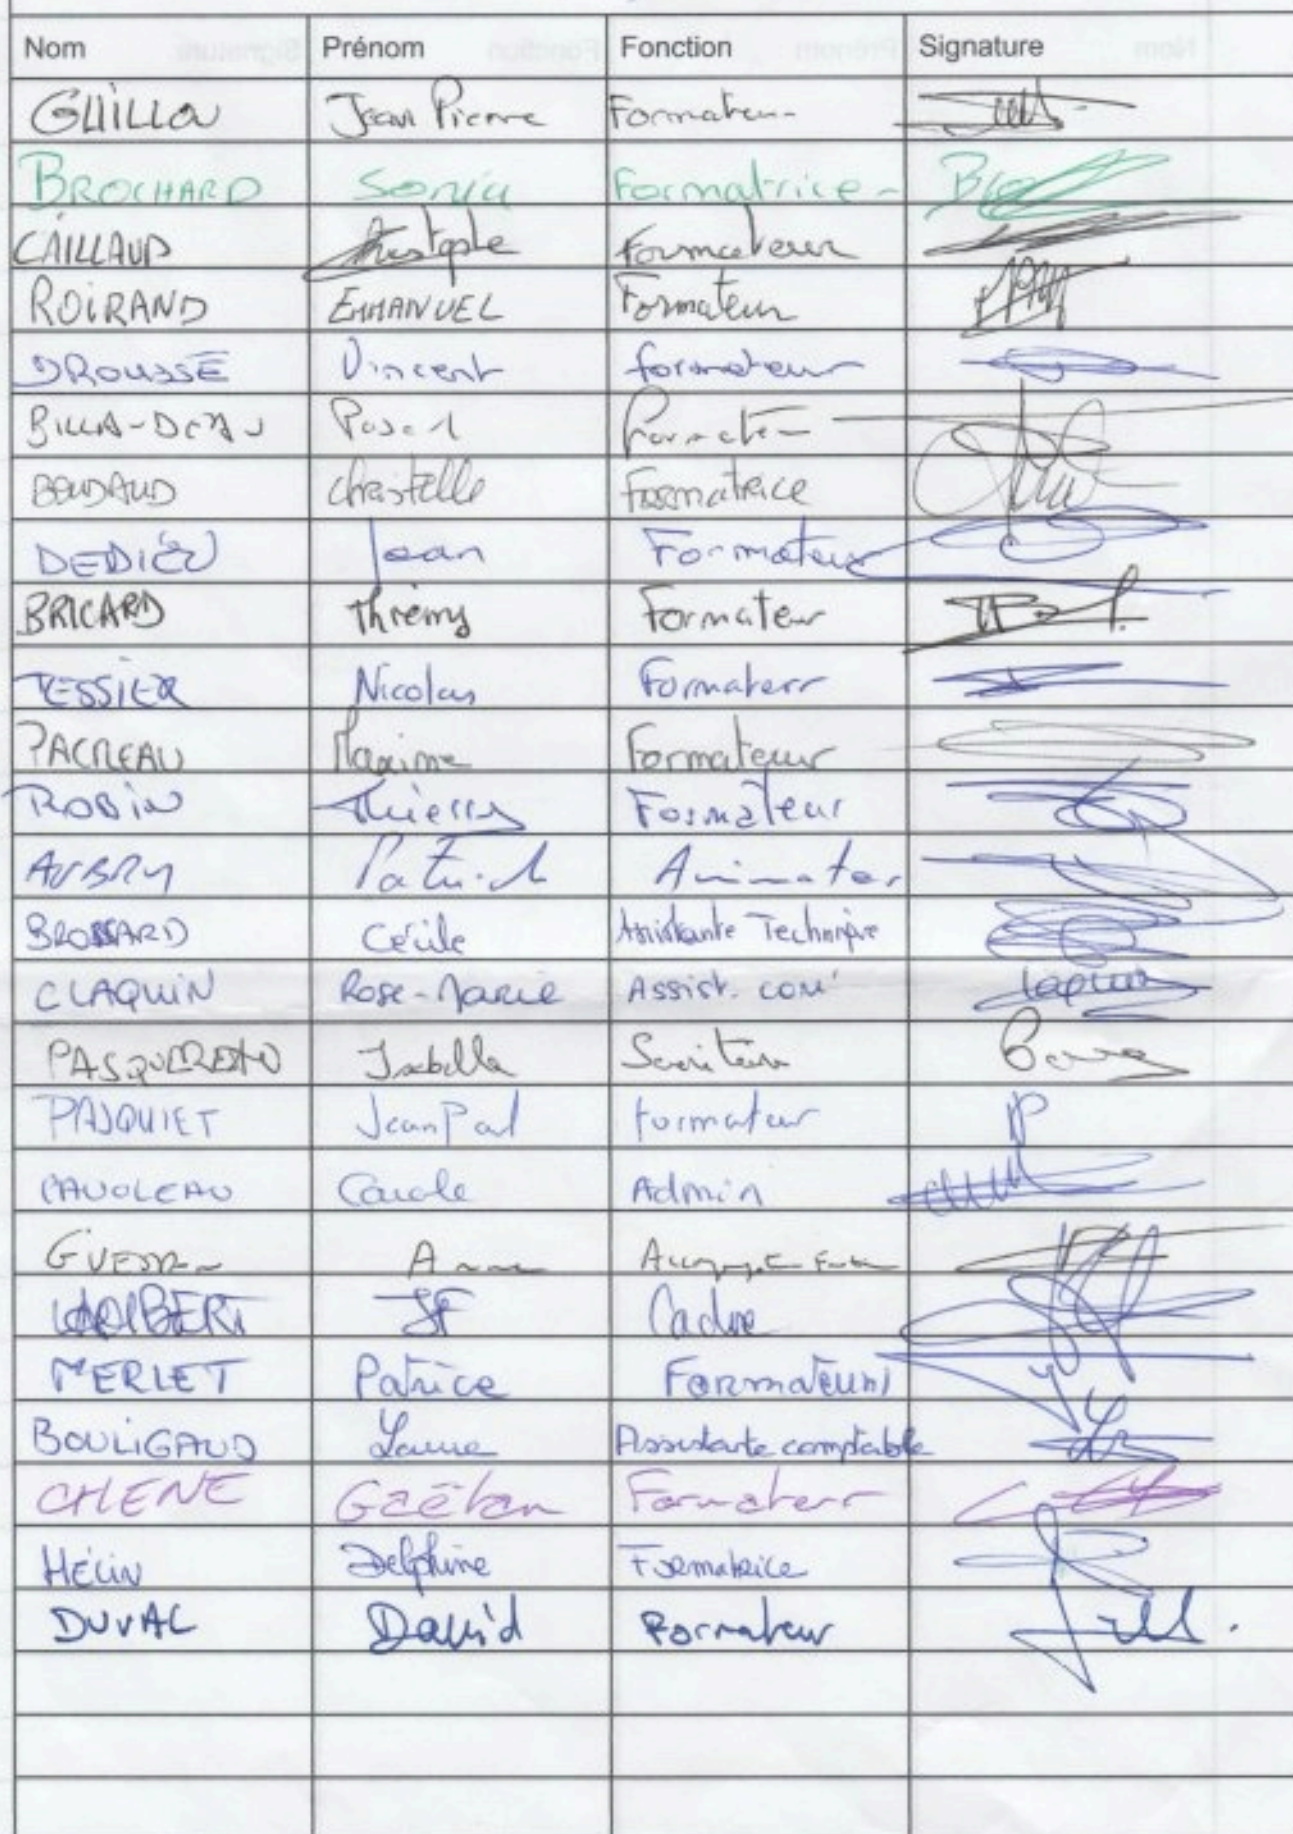 Nom Prénom Fonction Signature
GUILLOU Jean Pierre Formateur
BROCHARD Sonia Formatrice
CAILLAUD Christophe Formateur
ROIRAND EMMANUEL Formateur
DROUSSÉ Vincent formateur
Pascal
BOUDAUD Christelle Formatrice
DEDIEU Jean Formateur
BRICARD Thierry Formateur
TESSIER Nicolas Formateur
PACREAU Maxime Formateur
ROBIN Thierry Formateur
AUBRY Patrick Animateur
BROSSARD Cécile Assistante Technique
CLAQUIN Rose-Marie Assist. com
PASQUEREAU Isabelle
PASQUIET Jean Paul formateur
Carole Admin
LAMBERT JF Cadre
MERLET Patrice Formateur
BOULIGAUD Laure Assistante comptable
CHENE Gaëtan Formateur
HÉLIN Delphine Formatrice
DUVAL David Formateur